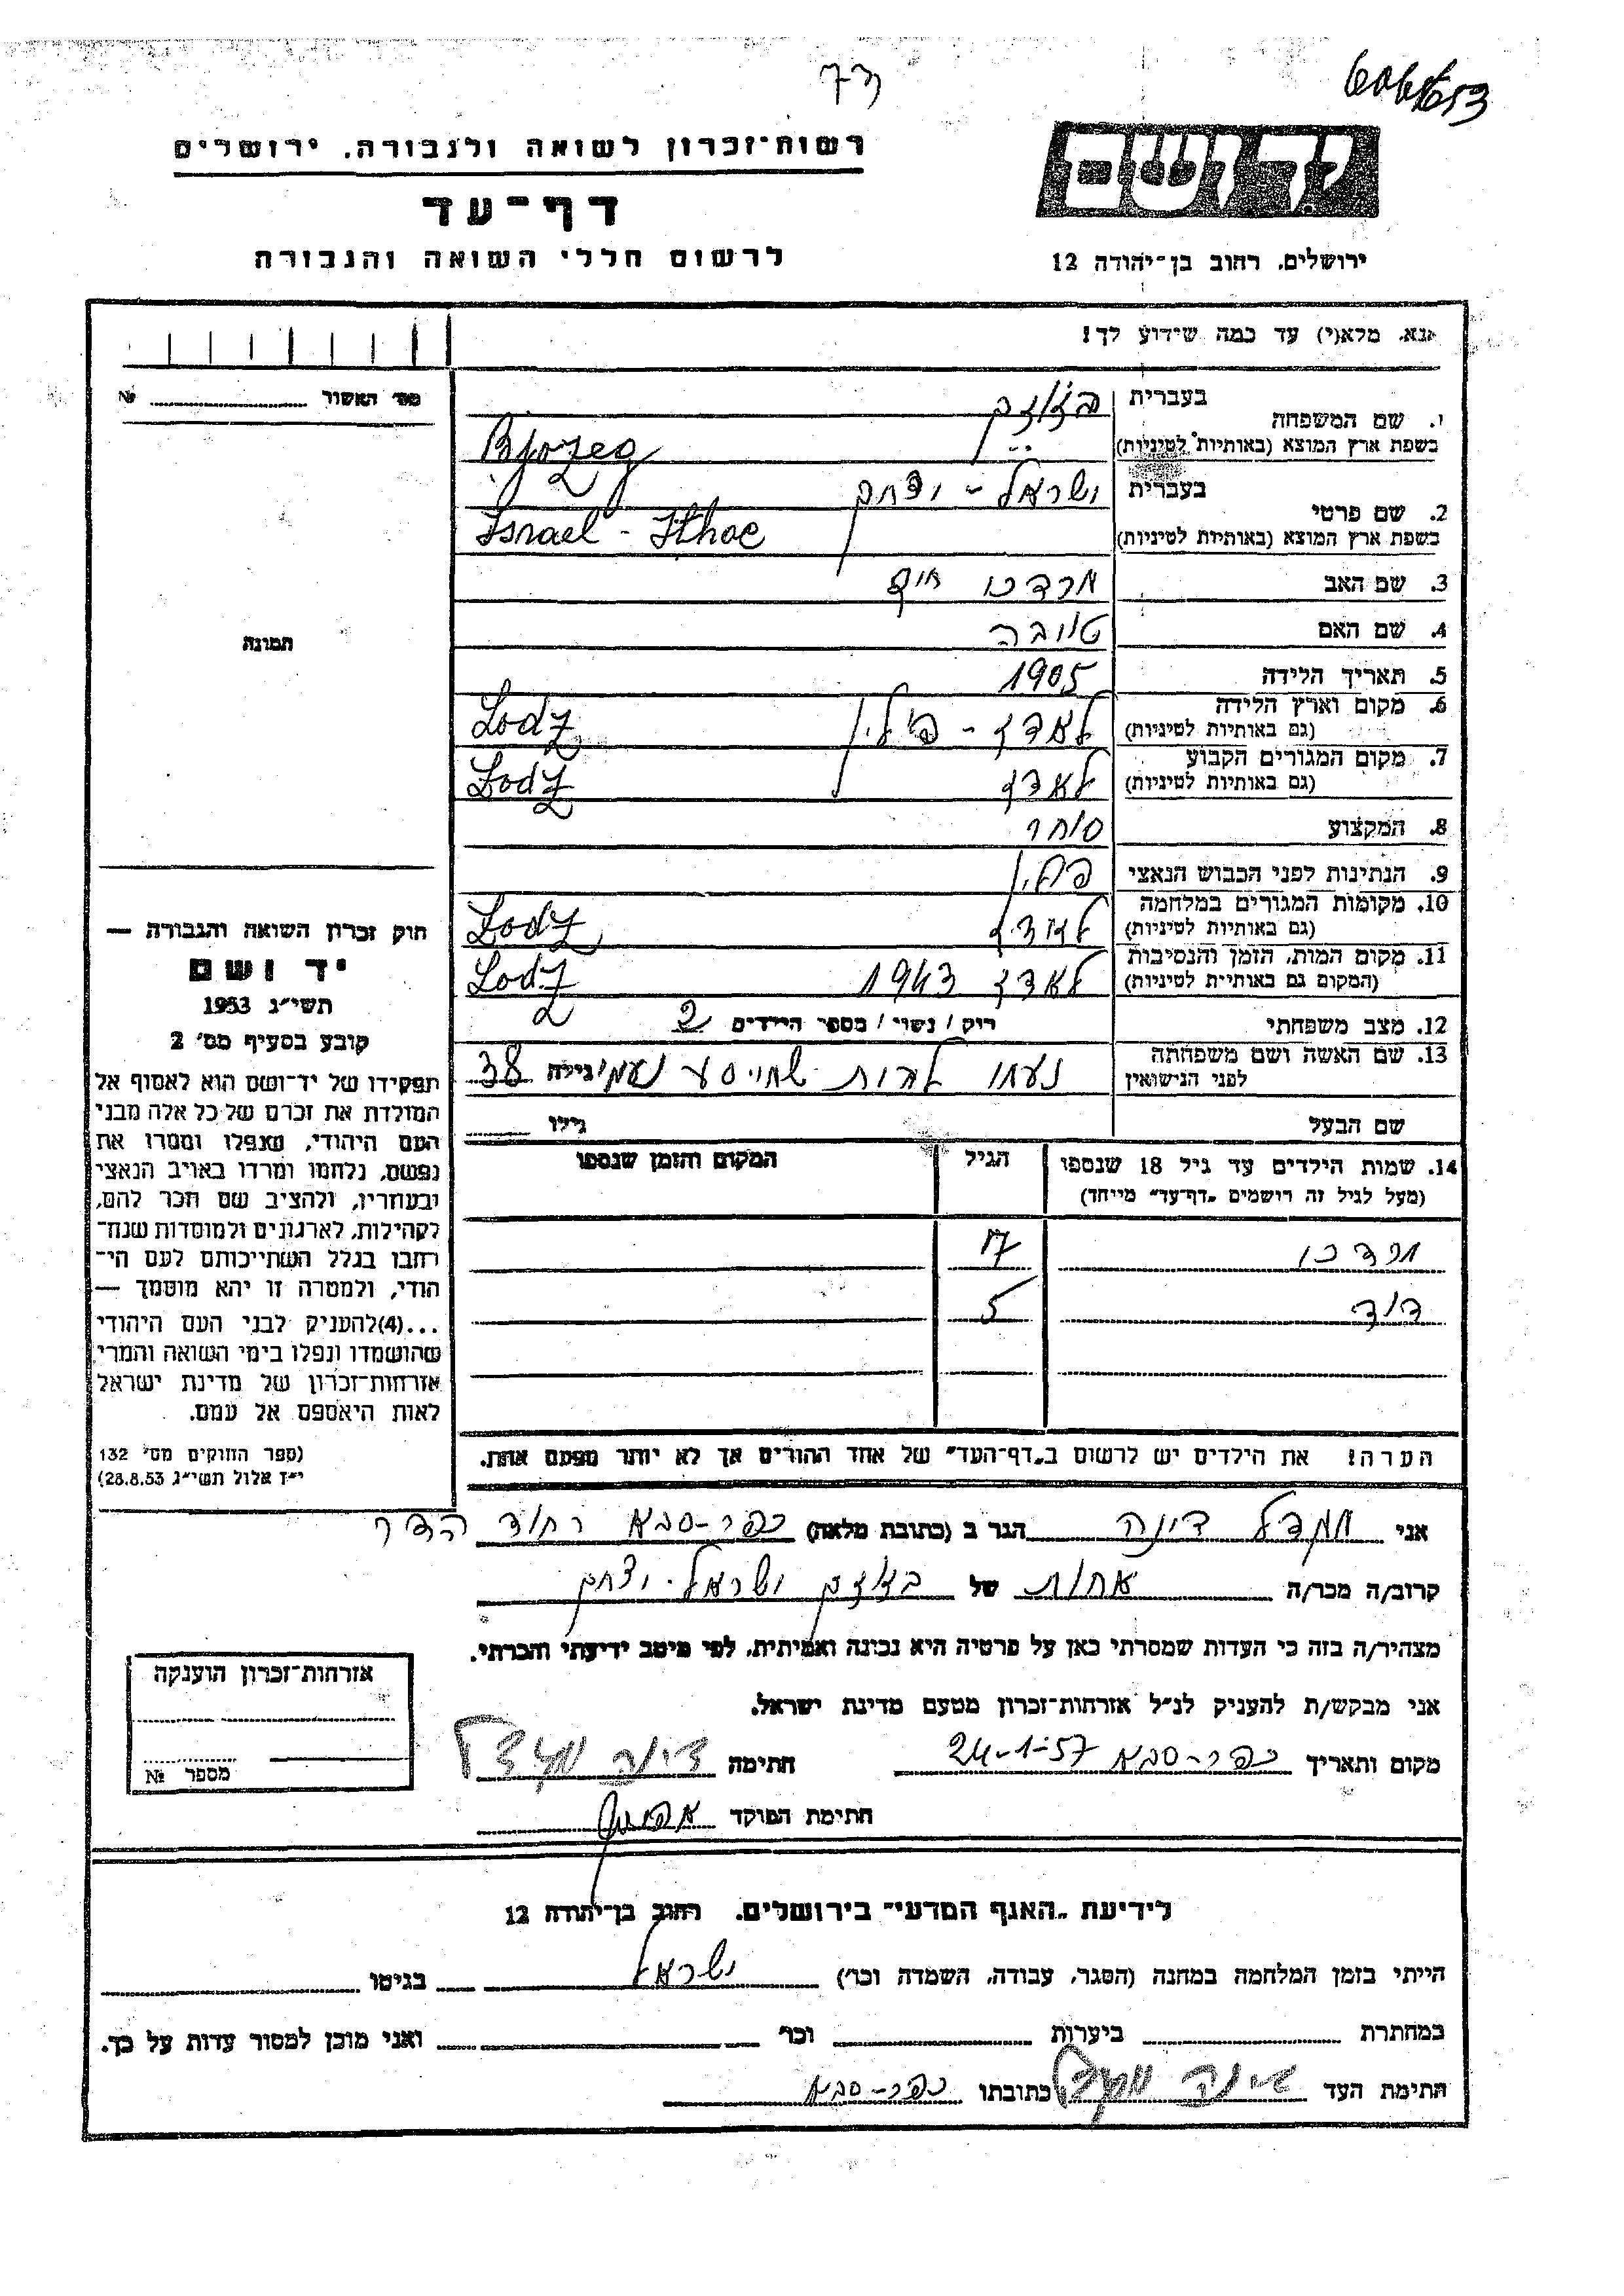 רשות־זכרון לשואה ולגבורה, ירושלים
דף־עד
לרשום חללי השואה והגבורה
ירושלים, רחוב בן־יהודה 12
נא, מלא(י) עד כמה שידוע לך!
מס׳ האשור №
תמונה
1. שם המשפחה
בעברית
בשפת ארץ המוצא (באותיות לטיניות)
2. שם פרטי
בעברית ישראל - יצחק
בשפת ארץ המוצא (באותיות לטיניות) Israel - Ithac
3. שם האב מרדכי חיים
4. שם האם טובה
5. תאריך הלידה 1905
6. מקום וארץ הלידה לאדז - פולין Lodz
(גם באותיות לטיניות)
7. מקום המגורים הקבוע לאדז Lodz
(גם באותיות לטיניות)
8. המקצוע סוחר
9. הנתינות לפני הכבוש הנאצי פולין
10. מקומות המגורים במלחמה לאדז Lodz
(גם באותיות לטיניות)
11. מקום המות, הזמן והנסיבות לאדז 1943 Lodz
(המקום גם באותיות לטיניות)
12. מצב משפחתי רוק / נשוי / מספר הילדים 2
13. שם האשה ושם משפחתה
לפני הנישואין נעמי לבית גילה 38
שם הבעל גילו
14. שמות הילדים עד גיל 18 שנספו הגיל המקום והזמן שנספו
(מעל לגיל זה רושמים „דף־עד״ מייחד)
מרדכי 17
דוד 5
הערה! את הילדים יש לרשום ב„דף־העד״ של אחד ההורים אך לא יותר מפעם אחת.
חוק זכרון השואה והגבורה —
יד ושם
תשי״ג 1953
קובע בסעיף מס׳ 2
תפקידו של יד־ושם הוא לאסוף אל
המולדת את זכרם של כל אלה מבני
העם היהודי, שנפלו ומסרו את
נפשם, נלחמו ומרדו באויב הנאצי
ובעוזריו, ולהציב שם וזכר להם,
לקהילות, לארגונים ולמוסדות שנח־
רחבו בגלל השתייכותם לעם הי־
הודי, ולמטרה זו יהא מוסמך —
...(4)להעניק לבני העם היהודי
שהושמדו ונפלו בימי השואה והמרי
אזרחות־זכרון של מדינת ישראל
לאות היאספם אל עמם.
(ספר החוקים מס׳ 132
י״ז אלול תשי״ג 28.8.53)
אני דינה הגר ב (כתובת מלאה) כפר-סבא רחוב הדר
קרוב/ה מכר/ה אחות של ישראל-יצחק
מצהיר/ה בזה כי העדות שמסרתי כאן על פרטיה היא נכונה ואמיתית, לפי מיטב ידיעתי והכרתי.
אני מבקש/ת להעניק לנ״ל אזרחות־זכרון מטעם מדינת ישראל.
מקום ותאריך כפר-סבא 24-1-57 חתימה דינה
חתימת הפוקד
אזרחות־זכרון הוענקה
מספר №
לידיעת „האגף המדעי״ בירושלים, רחוב בן־יהודה 12
הייתי בזמן המלחמה במחנה (הסגר, עבודה, השמדה וכו׳) ישראל בגיטו
במחתרת ביערות וכו׳ ואני מוכן למסור עדות על כך.
חתימת העד דינה כתובתו כפר-סבא